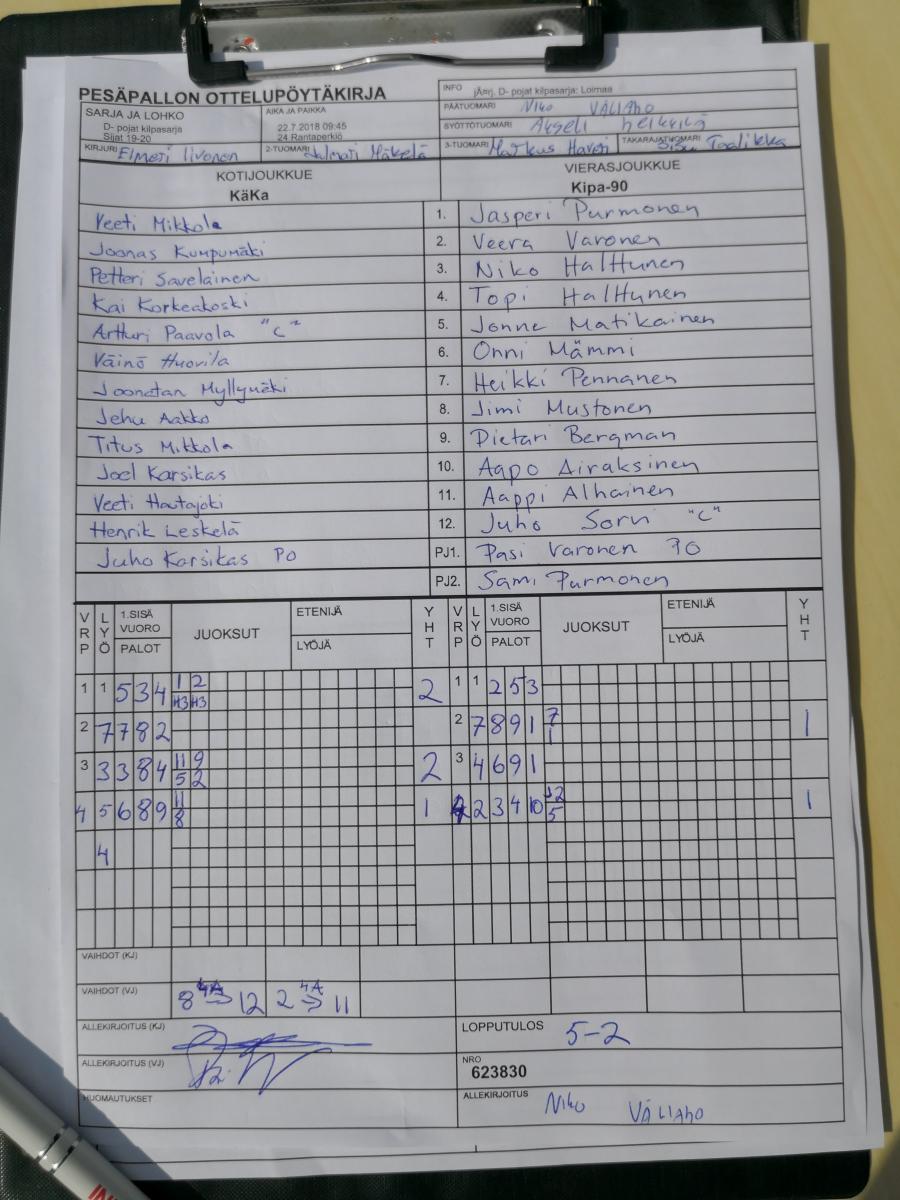 PESÄPALLON OTTELUPÖYTÄKIRJA
INFO jÄ¤rj. D- pojat kilpasarja: Loimaa
PÄÄTUOMARI Niko VÄLIAHO
SARJA JA LOHKO
D- pojat kilpasarja
Sijat 19-20
AIKA JA PAIKKA
22.7.2018 09:45
24.Rantaperkiö
SYÖTTÖTUOMARI Akseli heikkilä
KIRJURI Elmeri Iivonen
2-TUOMARI Jalmari Mäkelä
3-TUOMARI Markus Haveri
TAKARAJATUOMARI Taalikka
KOTIJOUKKUE
KäKa
VIERASJOUKKUE
Kipa-90
Veeti Mikkola 1. Jasperi Purmonen
Joonas Kumpumäki 2. Veera Varonen
Petteri Savelainen 3. Niko Halttunen
Kai Korkeakoski 4. Topi Halttunen
Artturi Paavola "C" 5. Jonne Matikainen
Väinö Huovila 6. Onni Mämmi
Joonatan Myllymäki 7. Heikki Pennanen
Jehu Aakko 8. Jimi Mustonen
Titus Mikkola 9. Pietari Bergman
Joel Karsikas 10. Aapo Airaksinen
Veeti Hautajoki 11. Aappi Alhainen
Henrik Leskelä 12. Juho Sorvi "C"
Juho Karsikas PO PJ1. Pasi Varonen PO
PJ2. Sami Purmonen
VRP LYÖ 1.SISÄ VUORO PALOT JUOKSUT ETENIJÄ LYÖJÄ YHT VRP LYÖ 1.SISÄ VUORO PALOT JUOKSUT ETENIJÄ LYÖJÄ YHT
1 1 5 3 4 1 2 2 1 1 2 5 3
H3 H3
2 7 7 8 2 2 7 8 9 1 7 1
1
3 3 3 8 4 11 9 2 3 4 6 9 1
5 2
4 5 6 8 9 11 1 4 2 3 4 10 12 1
8 5
4
VAIHDOT (KJ)
VAIHDOT (VJ) 8 4A→ 12 2 4A→ 11
ALLEKIRJOITUS (KJ)
LOPPUTULOS 5-2
ALLEKIRJOITUS (VJ)
NRO
623830
HUOMAUTUKSET
ALLEKIRJOITUS Niko VÄLIAHO